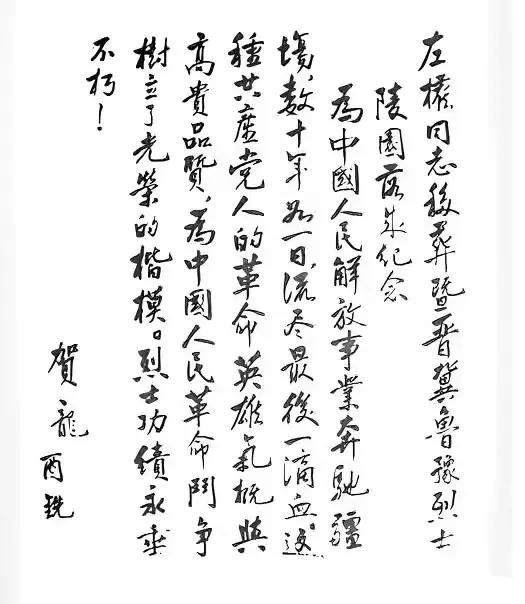 左權同志移葬暨晋冀魯豫烈士
陵園落成纪念
為中國人民解放事業奔馳疆
場，数十年如一日，流尽最後一滴血。这
種共産党人的革命英雄氣概與
高貴品質，為中國人民革命鬥争
樹立了光榮的楷模。烈士功績永垂
不朽！
賀龍